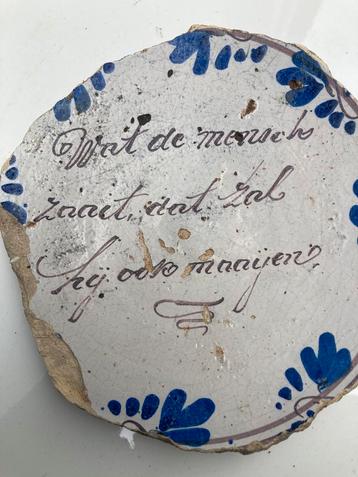 Wat de mensch
zaait, dat zal
hij ook maaijen.